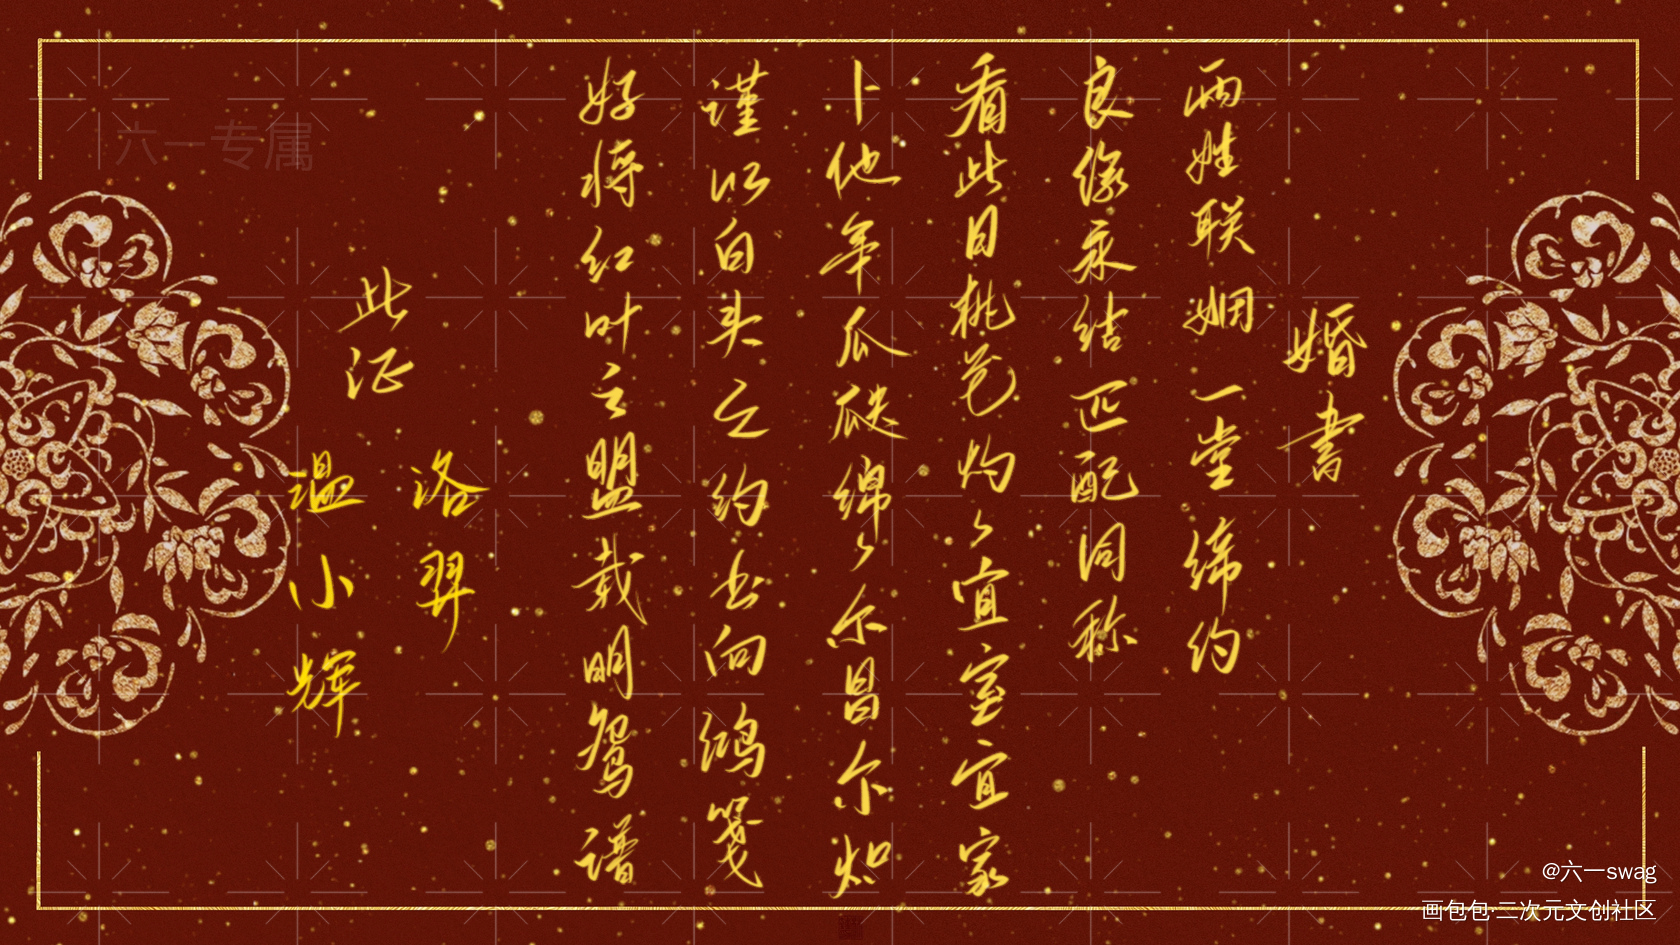 婚书
两姓联姻一堂缔约
良缘永结匹配同称
看此日桃花灼灼宜室宜家
卜他年瓜瓞绵绵尔昌尔炽
谨以白头之约书向鸿笺
好将红叶之盟载明鸳谱
此证
洛羿
温小辉
六一专属
@六一swag
画包包·二次元文创社区